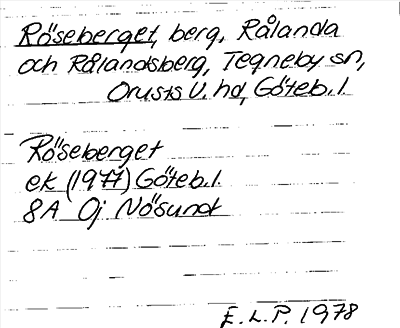 Röseberget, berg, Rålanda
och Rålandsberg, Tegneby sn,
Orusts V. hd, Göteb.l.
Röseberget
ek (1977) Göteb.l.
8A Oj Nösund
E.L.P. 1978